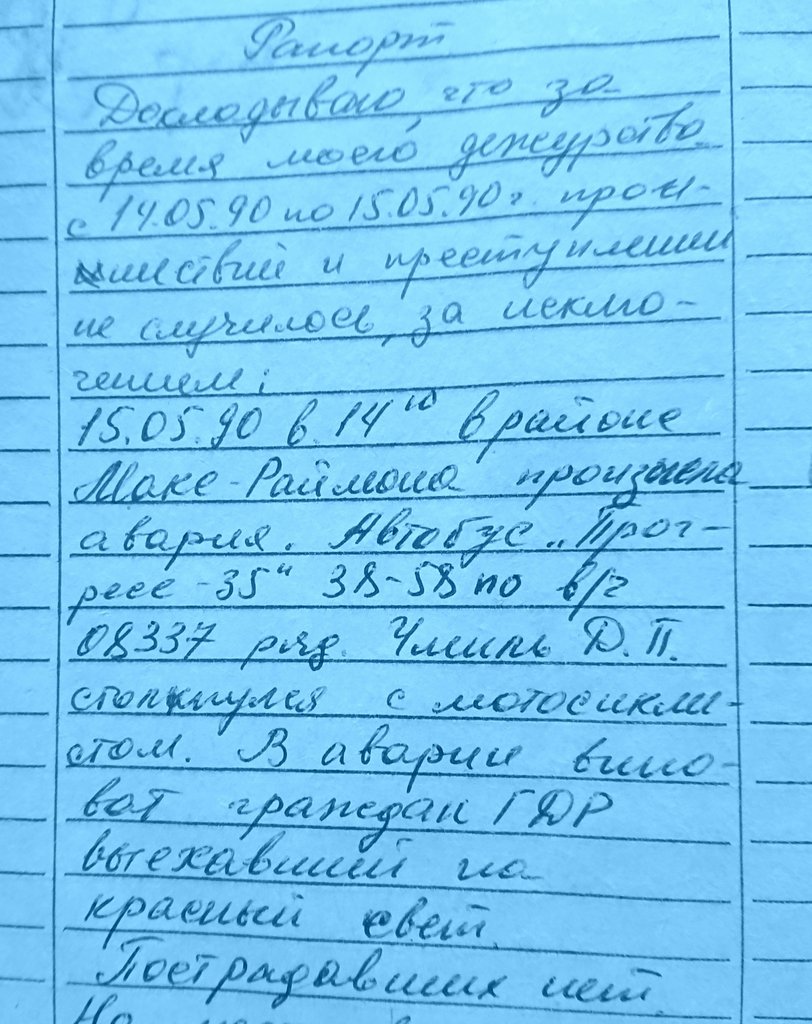 Рапорт
Докладываю, что за
время моего дежурства
с 14.05.90 по 15.05.90 г. прои-
шествий и преступлений
не случилось, за исклю-
чением:
15.05.90 в 14¹⁰ в районе
Макс-Раймона произошла
авария. Автобус „Прог-
ресс-35" 38-58 по в/ч
08337 ряд. Д.П.
столкнулся с мотосикли-
стом. В аварии вино-
ват граждан ГДР
выехавший на
красный свет.
Пострадавших нет.
На